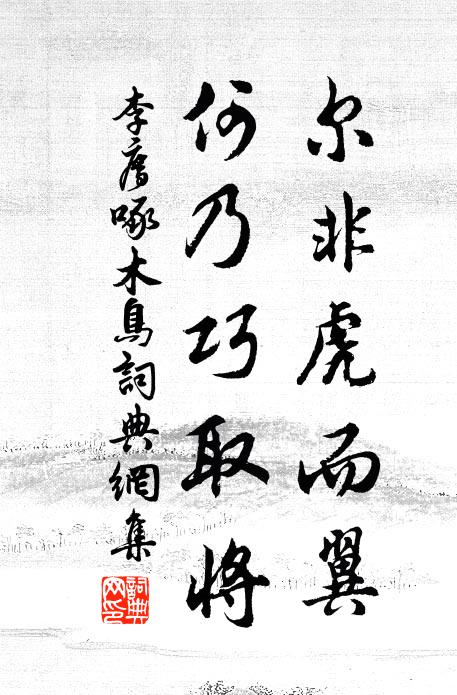 尔非虎而翼
何乃巧取将
李廌啄木鳥詞典網集
詞典网印